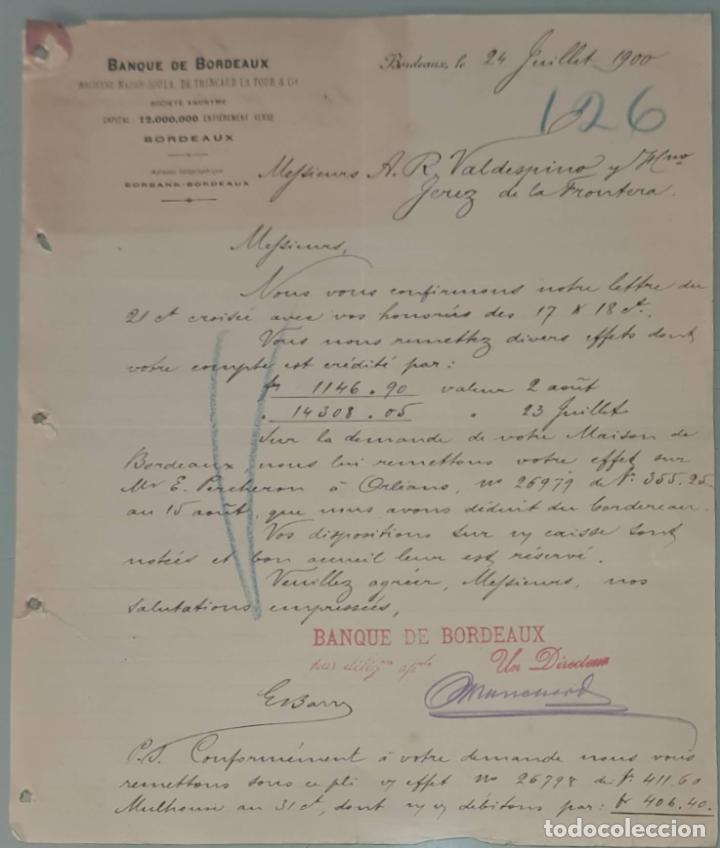 BANQUE DE BORDEAUX
SOCIÉTÉ ANONYME
CAPITAL: 12,000,000 ENTIÈREMENT VERSÉ
BORDEAUX
Adresse télégraphique
BORBANK-BORDEAUX
Bordeaux, le 24 Juillet 1900
126
Messieurs A. R. Valdespino y Hno
Jerez de la Frontera.
Messieurs,
Nous vous confirmons notre lettre du
21 ct croisée avec vos honorées des 17 & 18 ct.
Vous nous remettez divers effets dont
votre compte est crédité par:
fr 1146.90 valeur 2 août
" 14308.05 " 23 Juillet
Sur la demande de votre Maison de
Bordeaux, nous lui remettons votre effet sur
Mr E. Percheron à Orléans, no 26979 de fr. 355.25
au 15 août, que nous avons déduit du bordereau.
Vos dispositions sur n/ caisse sont
notées et bon accueil leur est réservé.
Veuillez agréer, Messieurs, nos
salutations empressées,
BANQUE DE BORDEAUX
Un Directeur
P.S. Conformément à votre demande nous vous
remettons sous ce pli v/ effet no 26798 de fr. 411.60
Mulhouse au 31 ct, dont n/ v/ débitons par: fr 406.40.
todocoleccion